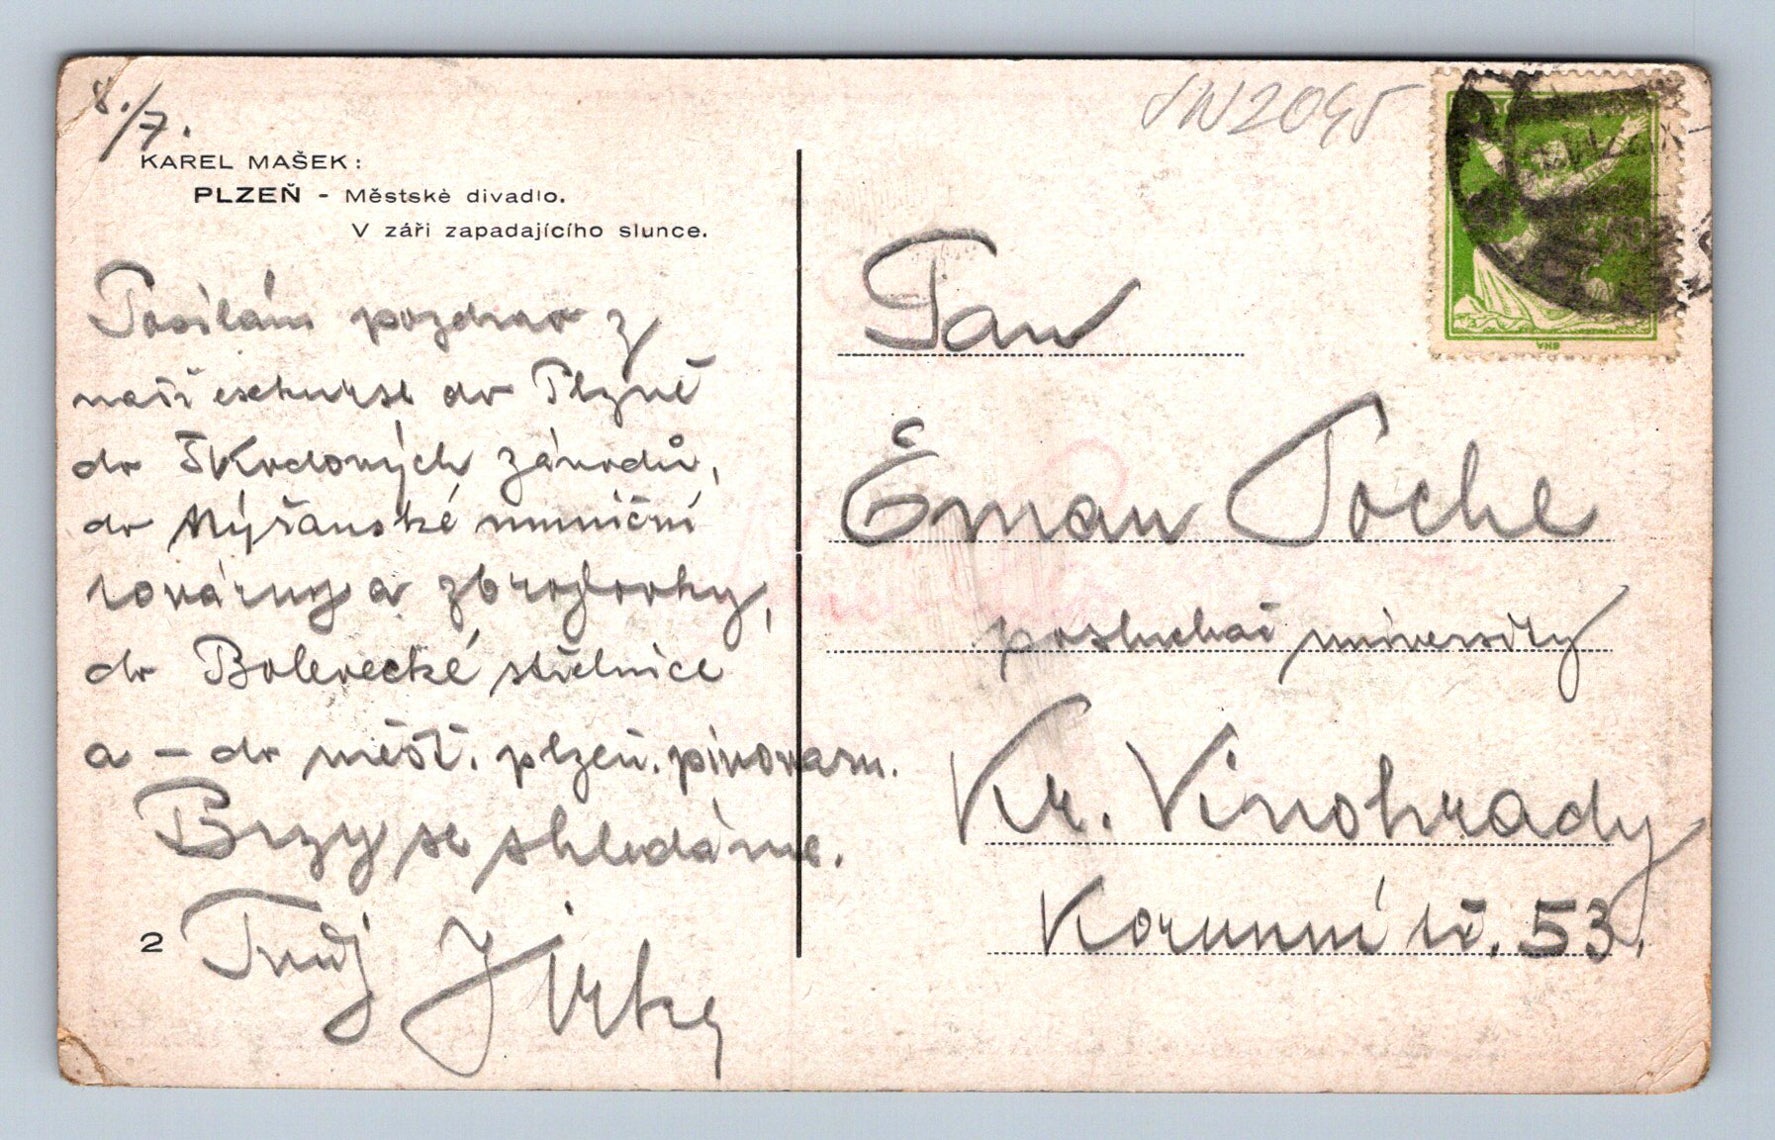 8./7.
KAREL MAŠEK:
PLZEŇ - Městské divadlo.
V záři zapadajícího slunce.
Posílám pozdrav z
naší exkurse do Plzně
do Škodových závodů,
do Nýřanské muniční
továrny a zbrojovky,
do Bolevecké střelnice
a – do měšť. plzeň. pivovaru.
Brzy se shledáme.
Tvůj Jirka
2
Pan
Eman Poche
posluchač university
Kr. Vinohrady
Korunní tř. 53.